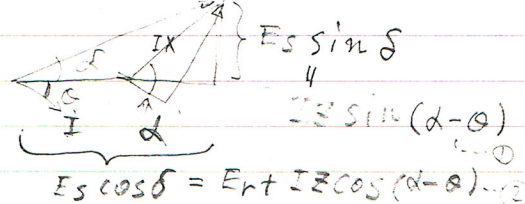 IX
Es sin δ
δ
〃
θ
IZ sin (α-θ)
I
α
…①
Es cos δ = Er + IZ cos (α-θ) …②